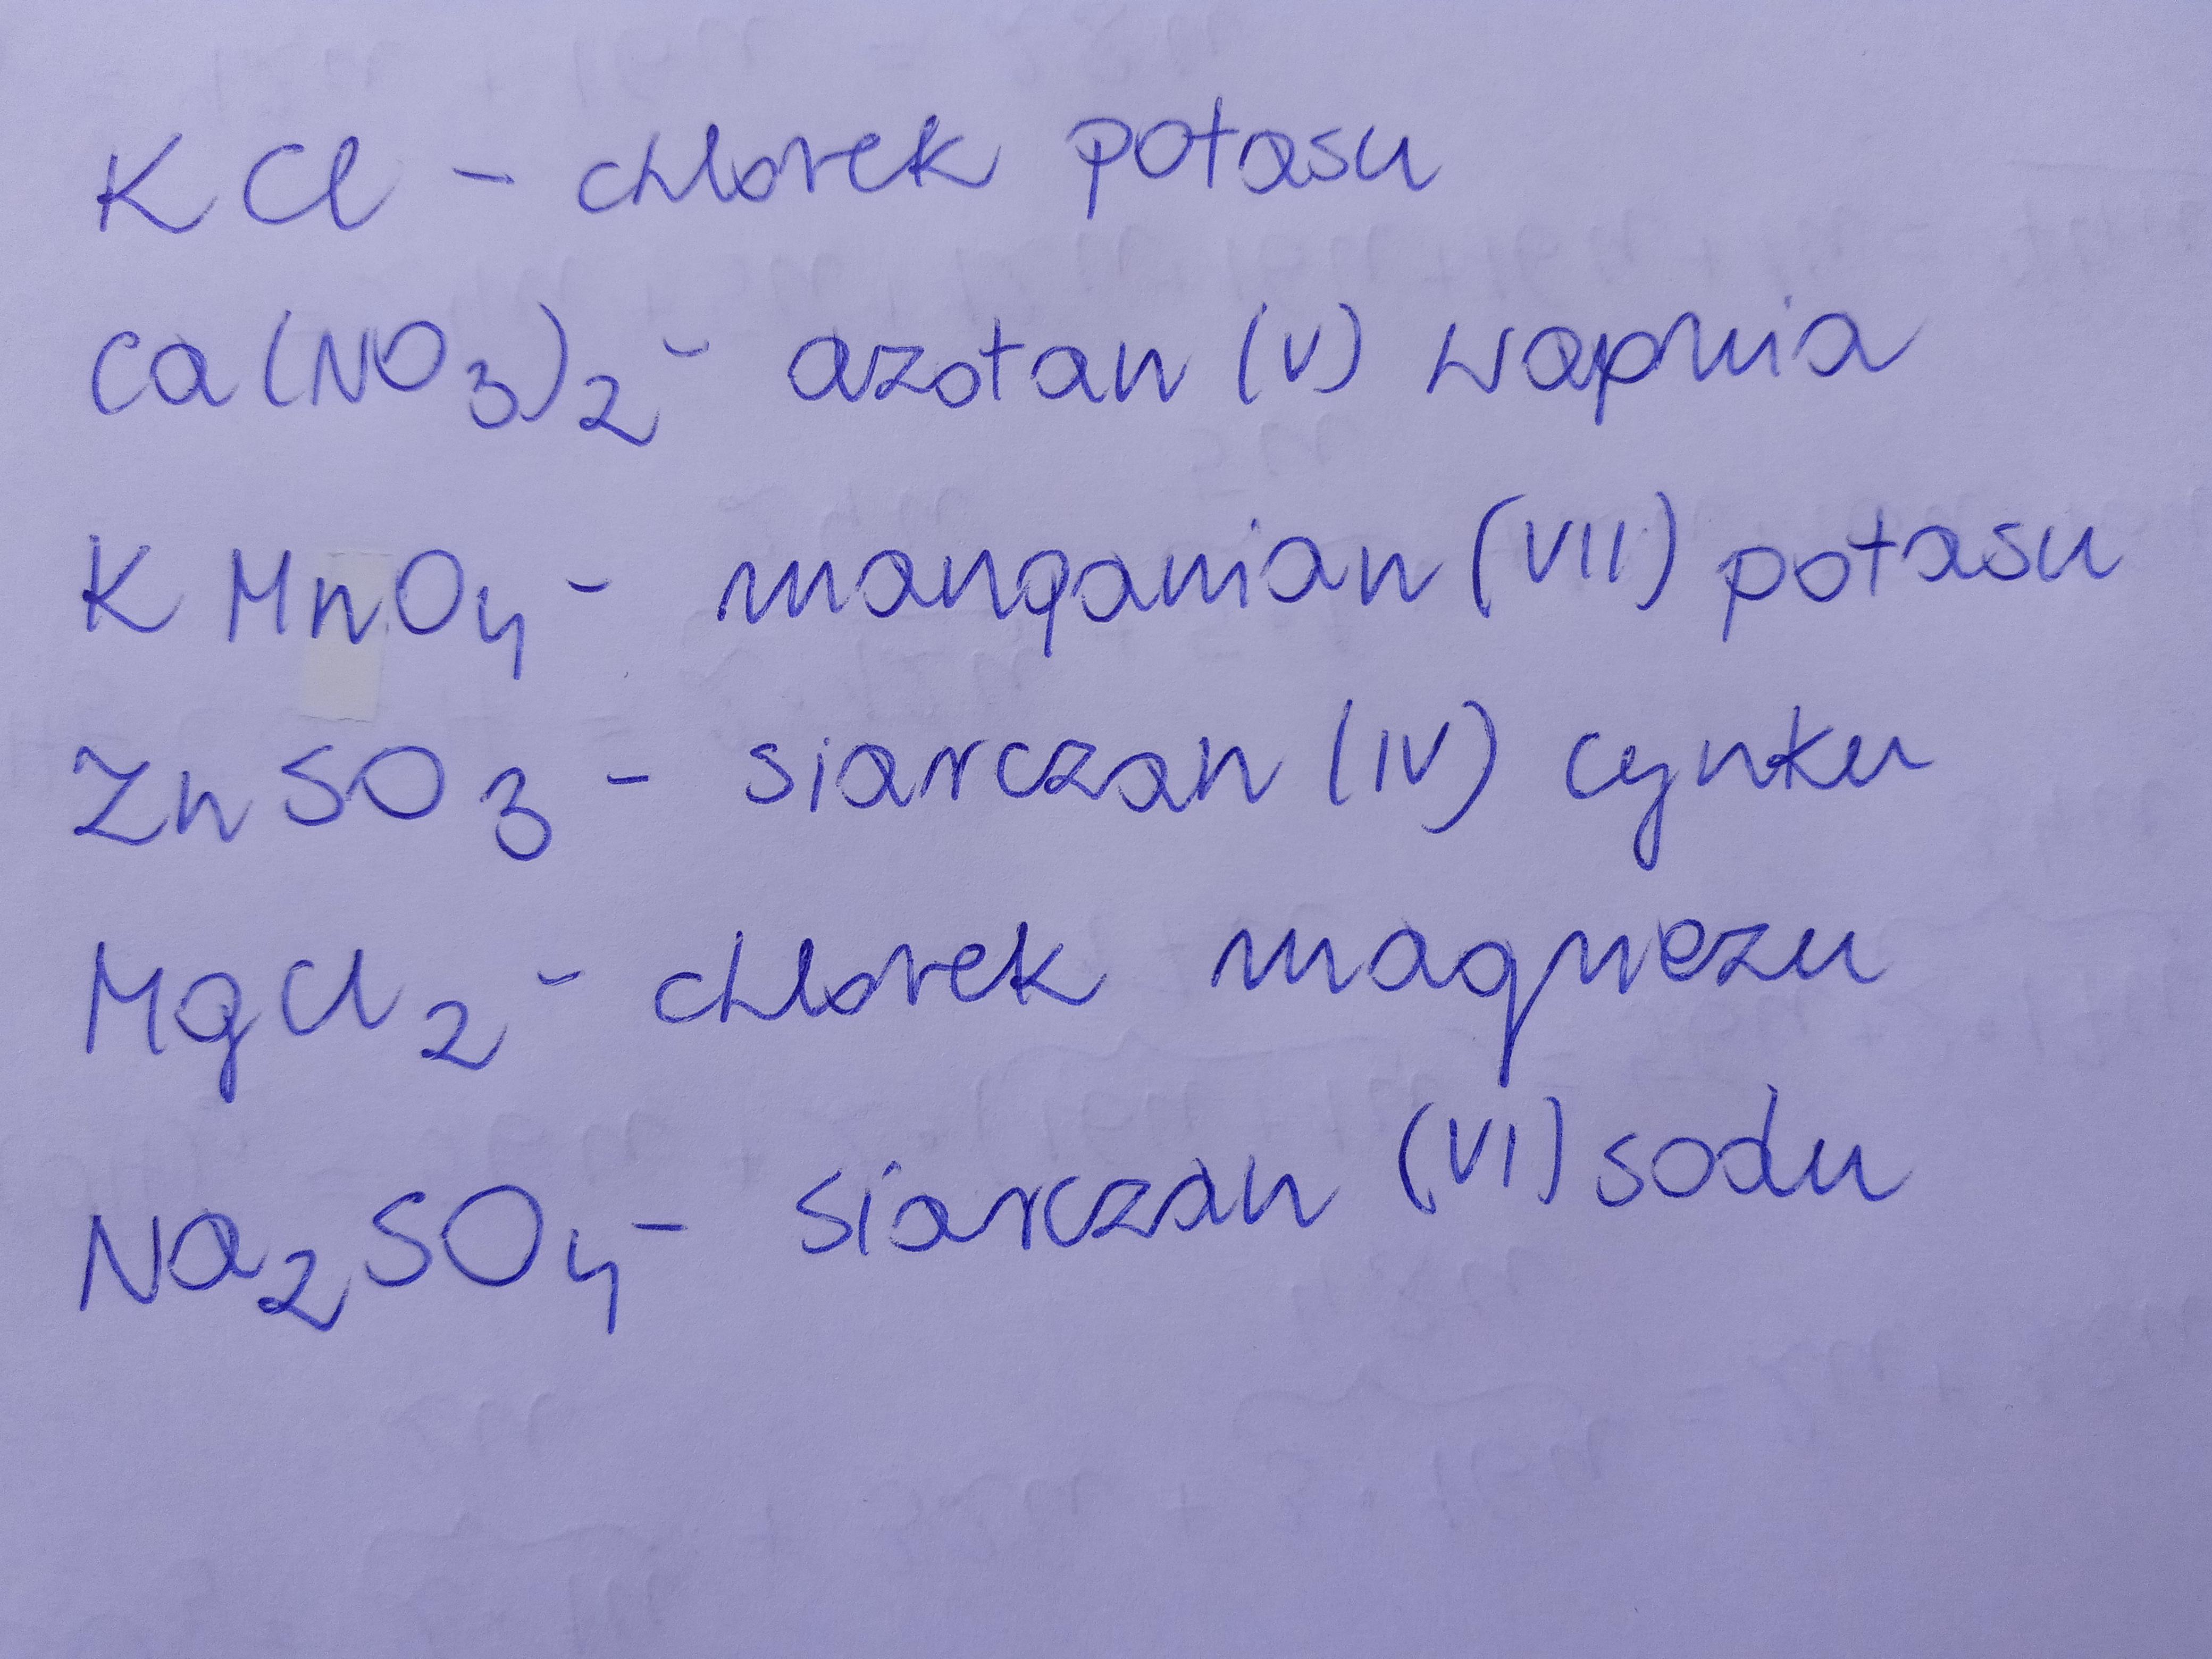 KCl - chlorek potasu
Ca(NO₃)₂ - azotan (V) wapnia
KMnO₄ - manganian (VII) potasu
ZnSO₃ - siarczan (IV) cynku
MgCl₂ - chlorek magnezu
Na₂SO₄ - siarczan (VI) sodu